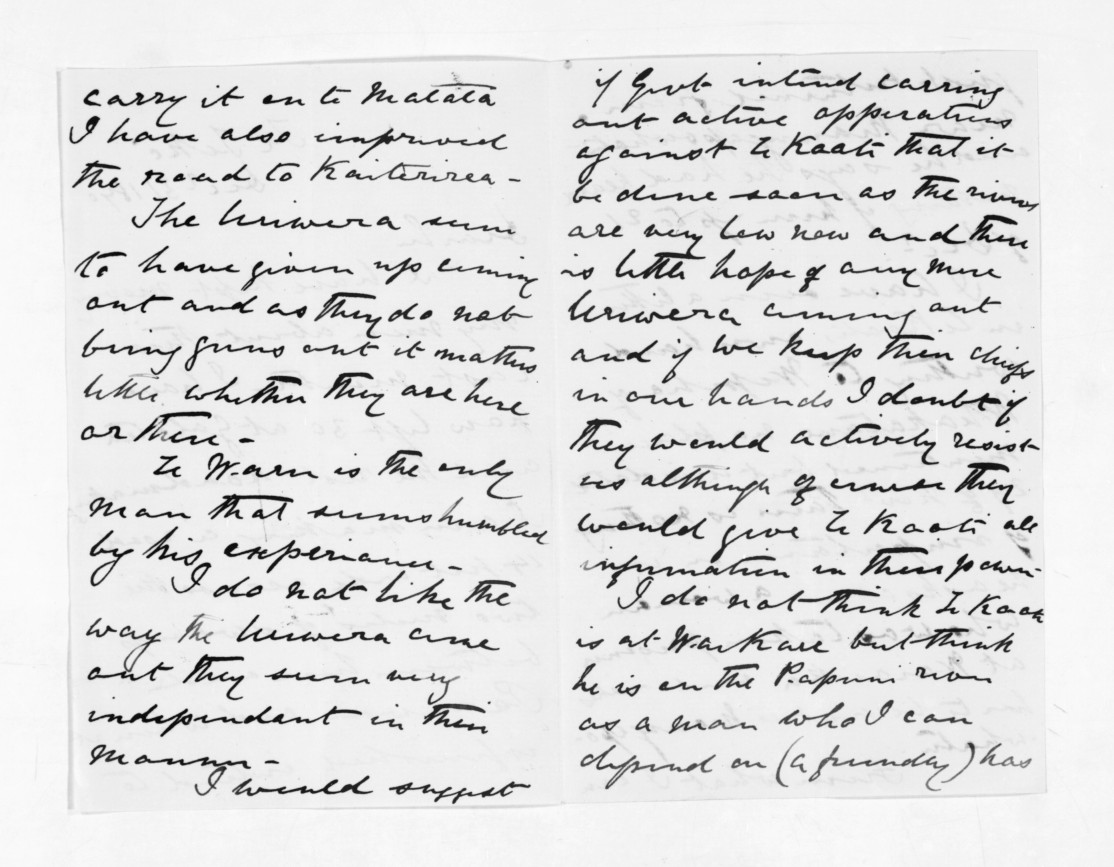 carry it on to Matata
I have also improved
the road to Kaiteririea -
The Uriwera seem
to have given up coming
out and as they do not
bring guns out it matters
little whether they are here
or there -
Te Waru is the only
man that seems humbled
by his experiance -
I do not like the
way the Uriwera come
out they seem very
independant in their
manner -
I would suggest
if Govt intend carring
out active opperations
against Te Kooti that it
be done soon as the rivers
are very low now and there
is little hope of any more
Uriwera coming out
and if we keep their chiefs
in our hands I doubt if
they would actively resist
us although of course they
would give Te Kooti all
information in their power -
I do not think Te Kooti
is at Waikare but think
he is on the Papuni river
as a man who I can
depend on (a friendly) has